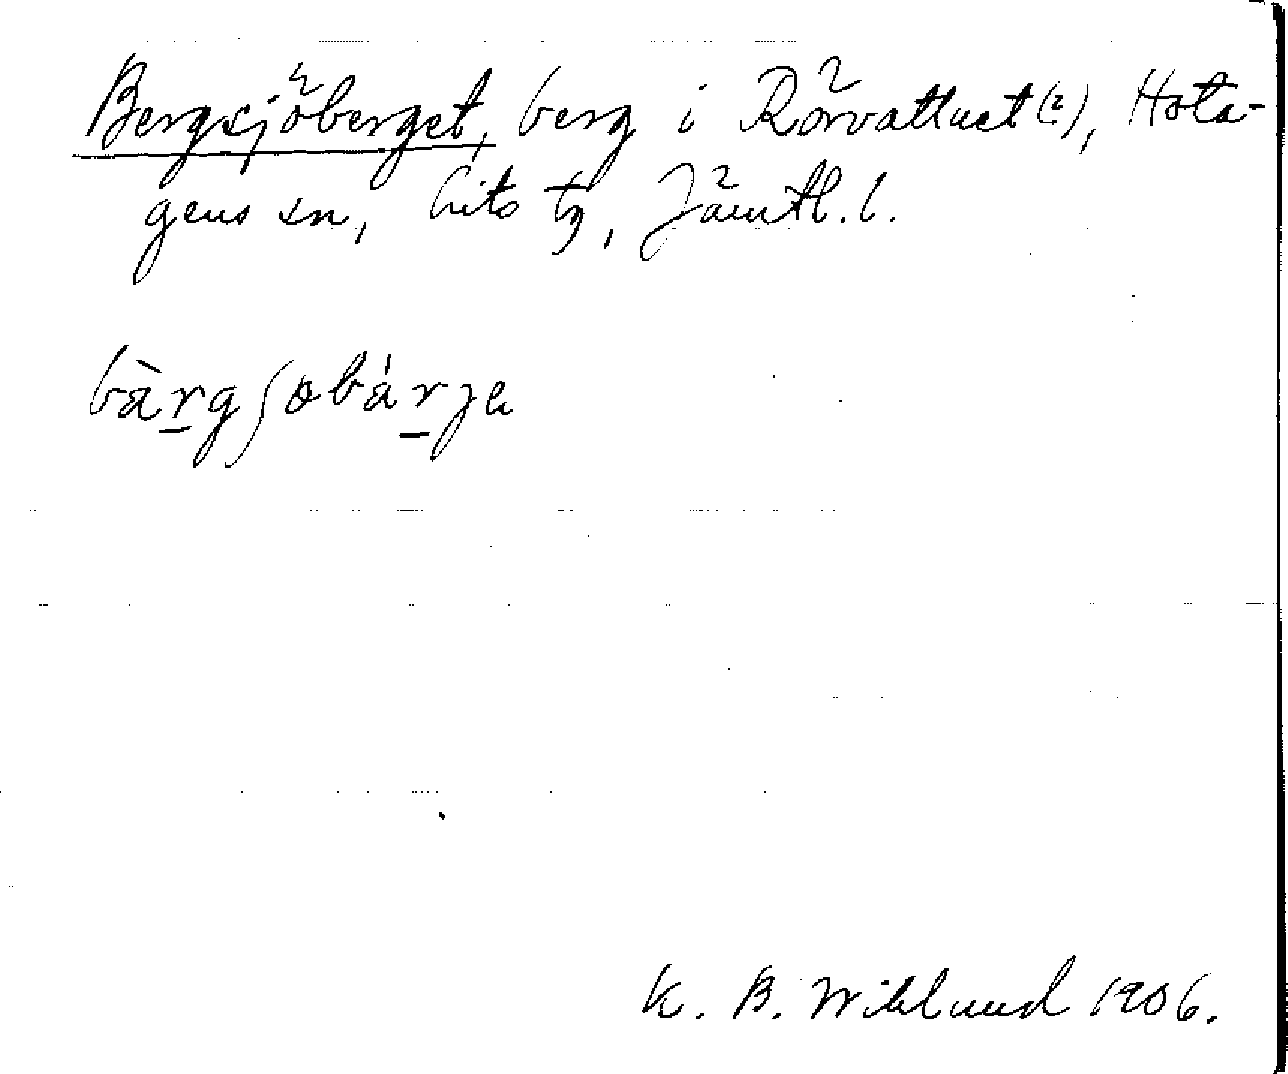 Bergsjöberget, berg i Rörvattnet (2), Hota-
gens sn, Lits tg, Jämtl. l.
bàrgʃobárje
K. B. Wiklund 1906.